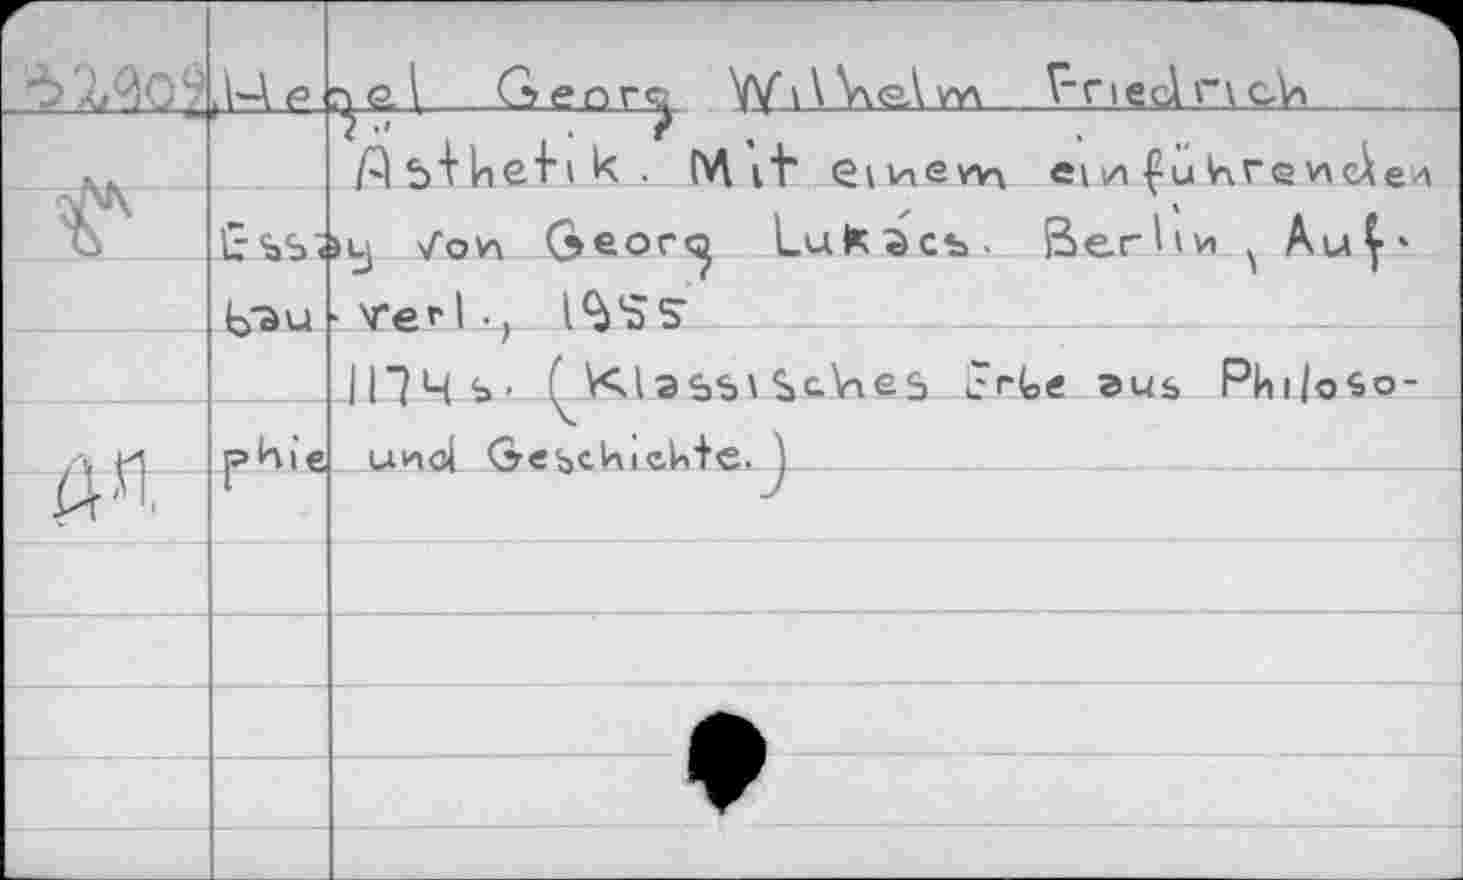 Hegel Georg Wilhelm Friedrich
Ästhetik. Mit einem einführenden
Essay von Georg Lukács. Berlin, Auf-
bau-verl., 1955
1174 s. (Klassisches Erbe aus Philoso-
phie und Geschichte.)